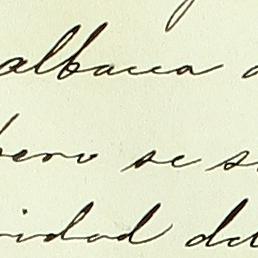 albacea
pero se s
ridad del